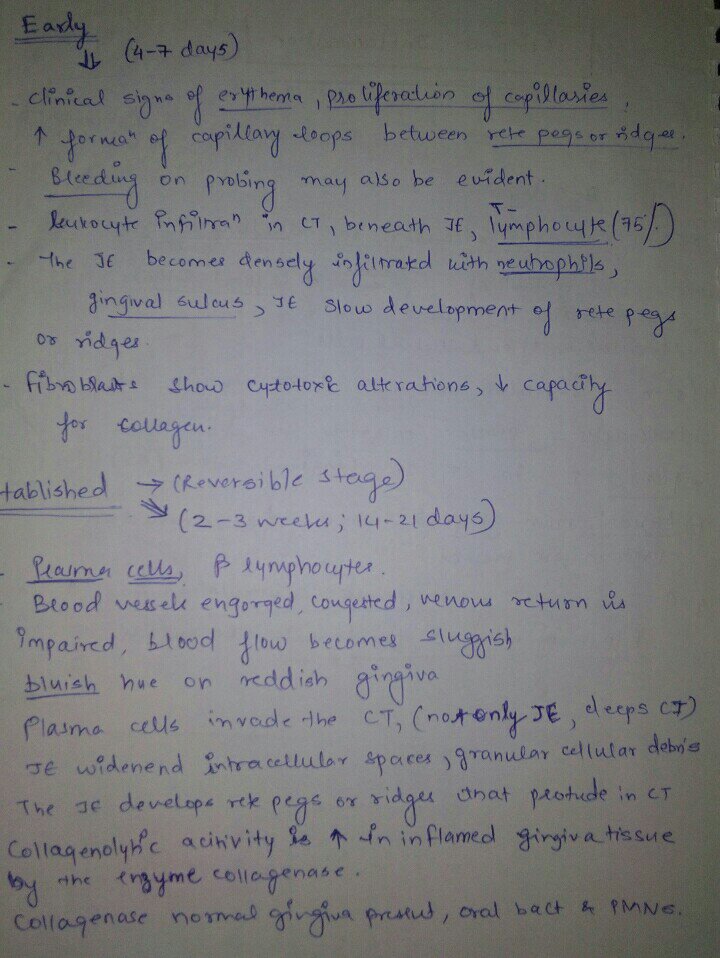 Early
(4-7 days)
- Clinical signs of erythema, proliferation of capillaries,
↑ forma^n of capillary loops between rete pegs or ridges.
- Bleeding on probing may also be evident.
- leukocyte infiltra^n in CT, beneath JE, T-lymphocyte (75%)
- The JE becomes densely infiltrated with neutrophils,
gingival sulcus, JE slow development of rete pegs
or ridges.
- fibroblasts show cytotoxic alterations, ↓ capacity
for collagen.
tablished → (Reversible stage)
(2-3 weeks; 14-21 days)
- Plasma cells, β lymphocytes.
- Blood vessels engorged, congested, venous return is
impaired, blood flow becomes sluggish
bluish hue on reddish gingiva
Plasma cells invade the CT, (not only JE, deeps CT)
JE widenend intracellular spaces, granular cellular debris
The JE develops rete pegs or ridges that protude in CT
Collagenolytic acitivity is ↑ in inflamed gingiva tissue
by the enzyme collagenase.
Collagenase normal gingiva present, oral bact & PMNs.